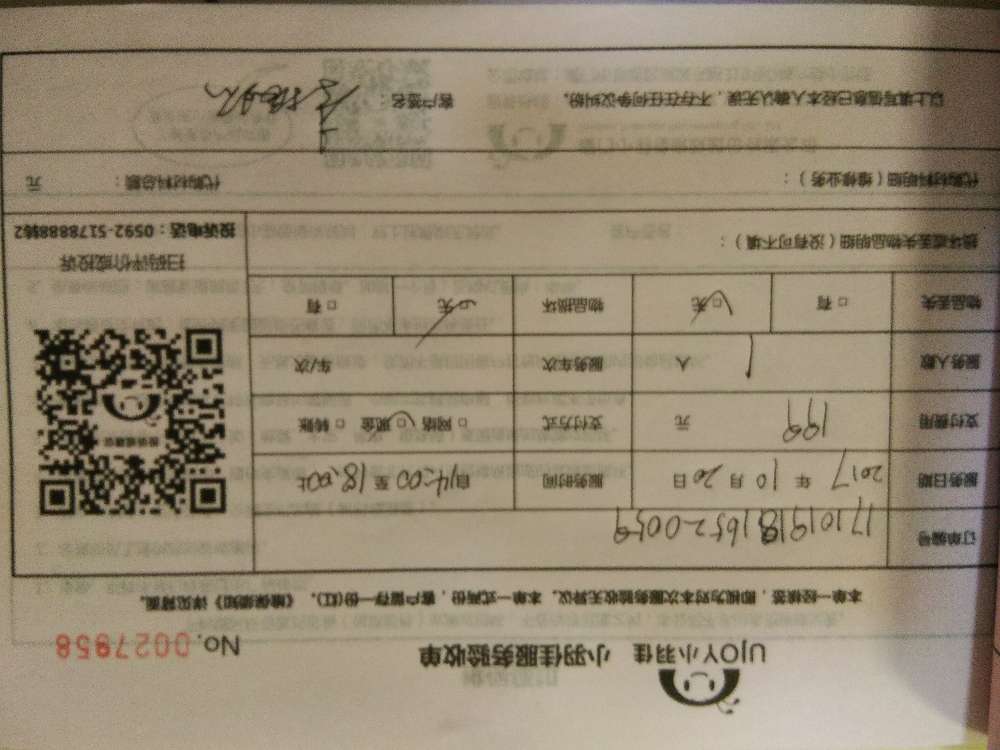 UJOY小羽佳 小羽佳服务验收单
No. 0027958
本单一经核签，即视为对本次服务验收无异议。本单一式两份，客户留存一份(红)。《维保须知》详见背面。
订单编号 171019181652-0059
服务日期 2017 年 10 月 20 日 服务时间 自14:00 至 18:00止
支付费用 199 元 支付方式 □ 网络 □ 现金 □ 转账
服务人数 1 人 服务车次 车/次
物品丢失 □ 有 □ 无 物品损坏 □ 无 □ 有
投诉建议
扫码评价或投诉
投诉电话：0592-5178888转2
损坏或丢失物品明细（没有可不填）：
代购材料明细（维修业务）： 代购材料总额： 元
以上填写信息已经本人确认无误，不存在任何争议纠纷。 客户签名：